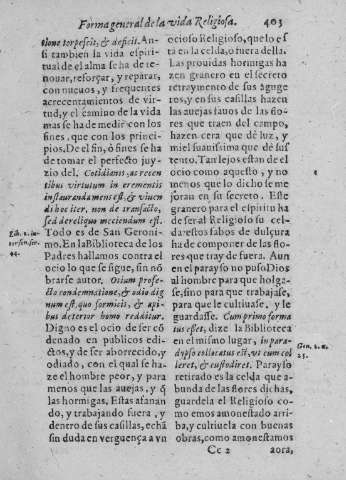 Forma general de la vida Religiosa. 403
tione torpescit, & deficit. An-
si tambien la vida espiri-
tual de el alma se ha de re-
nouar, reforçar, y reparar,
con nueuos, y frequentes
acrecentamientos de vir-
tud, y el camino de la vida
mas se ha de medir con los
fines, que con los princi-
pios. De el fin, ò fines se ha
de tomar el perfecto juy-
zio del. Cotidianis, ac recen
tibus virtutum in crementis
instaurandamens est, & viuen
di hoc iter, non de transacto,
sed dereliquo metiendum est.
Todo es de San Geroni-
mo. En la Biblioteca de los
Padres hallamos contra el
ocio lo que se sigue, sin nõ
brarse autor. Otium profe-
cto condemnatione, & odio dig
num est, quo formicis, & api-
bus deterior homo redditur.
Digno es el ocio de ser cõ
denado en publicos edi-
ctos, y de ser aborrecido, y
odiado, con el qual se ha-
ze el hombre peor, y para
menos que las auejas, y q̃
las hormigas. Estas afanan
do, y trabajando fuera, y
dentro de sus casillas, echã
sin duda en verguença a vn
44.
ocioso Religioso, quelo es
tà en la celda, o fuera della.
Las prouidas hormigas ha
zen granero en el secreto
retraymento de sus aguge
ros, y en sus casillas hazen
las auejas fauos de las flo-
res que traen del campo,
hazen cera que dè luz, y
miel suauissima que dè sus
tento. Tan lejos estan de el
ocio como aquesto, y no
menos que lo dicho se me
joran en su secreto. Este
granero para el espiritu ha
de ser al Religioso su cel-
da: estos fabos de dulçura
ha de componer de las flo-
res que tray de fuera. Aun
en el parayso no puso Dios
al hombre para que holga-
se, sino para que trabajase,
para que le cultiuase, y le
guardasse. Cum primo forma
tus esset, dize la Biblioteca
en el mismo lugar, in para-
dyso collocatus est, vt eum col
leret, & custodiret. Parayso
retirado es la celda que a-
bunda de las flores dichas,
guardela el Religioso co-
mo emos amonestado arri-
ba, y cultiuela con buenas
obras, como amonestamos
Gen. 2. n.
15.
Cc 2 aora,